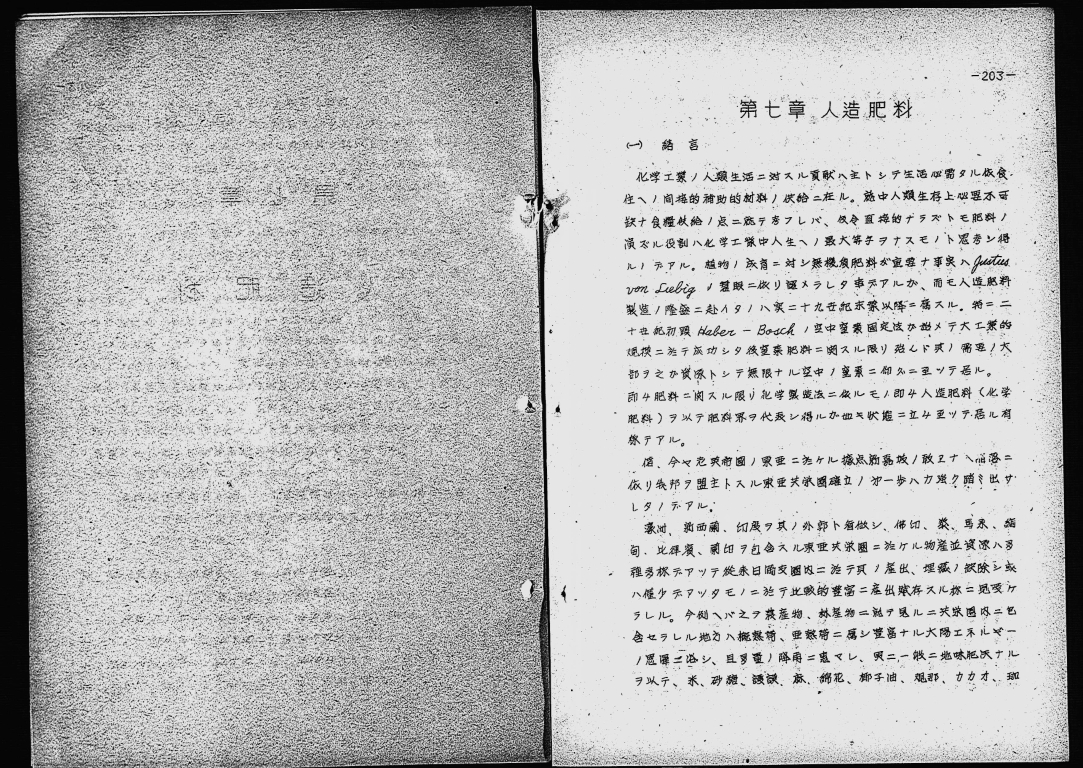 -203-
第七章 人造肥料
(一) 緒言
化学工業ノ人類生活ニ対スル貢献ハ主トシテ生活必需タル依食
住ヘノ間接的補助的材料ノ供給ニ在ル。就中人類生存上必要不可
欠ナ食糧供給ノ点ニ於テ夫レバ、仮令直接的ナラズトモ肥料ノ
演ズル役割ハ化学工業中人生ヘノ最大寄与ヲナスモノト思考シ得
ルノデアル。植物ノ成育ニ対シ無機質肥料が重要ナ事実ハ Justus
von Liebig ノ慧眼ニ依リ認メラレタ事デアルガ、而モ人造肥料
製造ノ隆盛ニ赴イタノハ実ニ十九世紀末葉以降ニ属スル。特ニ二
十世紀初頭 Haber - Bosch ノ空中窒素固定法が始メテ大工業的
規模ニ於テ成功シタ後窒素肥料ニ関スル限リ殆んド其ノ需要ノ大
部ヲ之が資源トシテ無限ナル空中ノ窒素ニ仰グニ至ツテ居ル。
即チ肥料ニ関スル限リ化学製造法ニ依ルモノ即チ人造肥料(化学
肥料)ヲ以テ肥料界ヲ代表シ得ルが如キ状態ニ立チ至ツテ居ル有
様デアル。
偖、今ヤ老英帝國ノ東亜ニ於ケル據点新嘉坡ノ敢エナヘ
依リ我邦ヲ盟主トスル東亜共栄圏確立ノ才一歩ハ力強ク踏ミ出サ
レタノデアル。
濠洲、新西蘭、印度ヲ其ノ外郭ト看做シ、佛印、泰、馬来、緬
甸、比律賓、蘭印ヲ包含スル東亜共栄圏ニ於ケル物産並資源ハ多
種多様デアツテ従来日満支圏内ニ於テ其ノ産出、埋蔵ノ欠除シ或
ハ僅少デアツタモノニ於テ比較的豊富ニ産出賦存スル様ニ見受ケ
ラレル。今例ヘバ之ヲ農産物、林産物ニ就テ見ルニ共栄圏内ニ包
含セラレル地方ハ概熱帯、亜熱帯ニ属シ豊富ナル太陽エネルギー
ノ恩澤ニ浴シ、且多量ノ降雨ニ恵マレ、更ニ一般ニ地味肥沃ナル
ヲ以テ、米、砂糖、護謨、麻、綿花、椰子油、規那、カカオ、珈